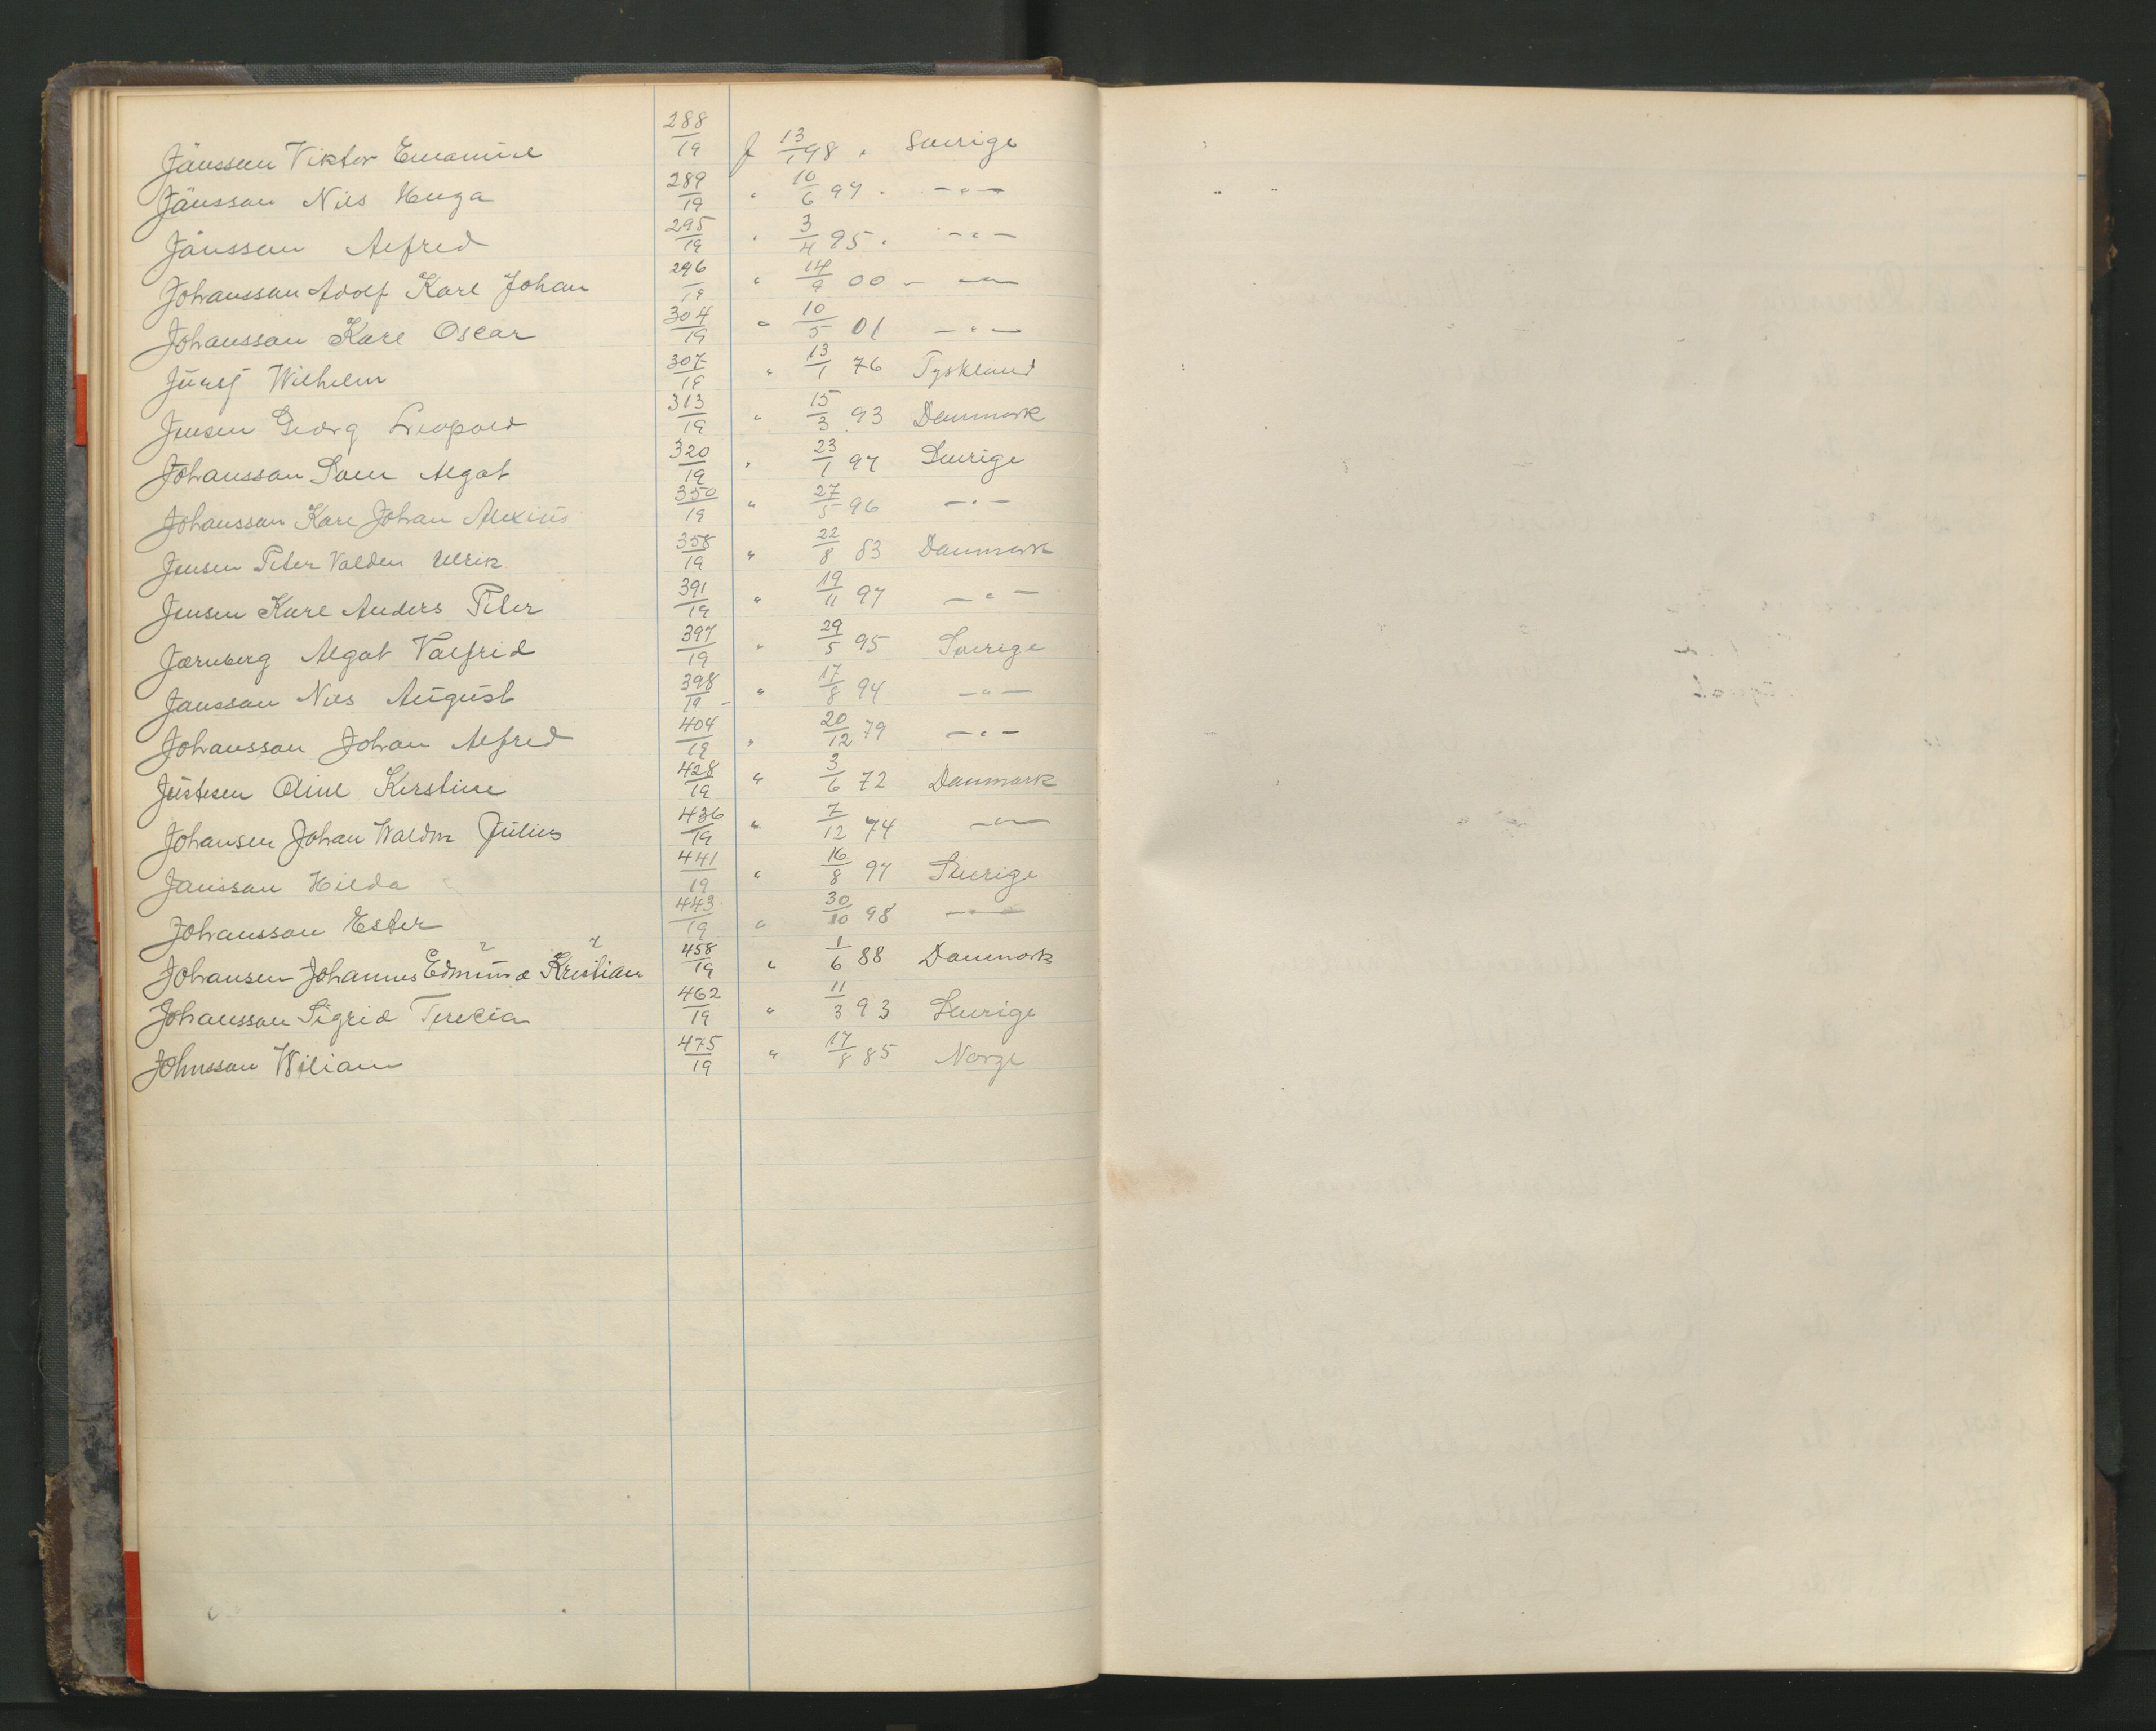 Jänsson Viktor Emanuel 288/19 f 13/1 98 . Sverige
Jänsson Nils Huga 289/19 " 10/6 97 . — " —
Jänsson Alfred 295/19 " 3/4 95 . — " —
Johansson Adolf Karl Johan 296/19 " 14/9 00 — — " —
Johansson Karl Oscar 304/19 " 10/5 01 — " —
Wilhelm 307/19 " 13/1 76 Tyskland
Jensen Georg Leopold 313/19 " 15/3 93 Danmark
Johansson Sam Algot 320/19 " 23/1 97 Sverige
Johansson Karl Johan Alexius 350/19 " 27/5 96 — " —
Jensen Peter Valden Ulrik 358/19 " 22/8 83 Danmark
Jensen Karl Anders Peter 391/19 " 19/11 97 — " —
Jærnberg Algot Valfrid 397/19 " 29/5 95 Sverige
Jansson Nils August 398/19 – " 17/8 94 — " —
Johansson Johan Alfred 404/19 " 20/12 79 — " —
Justesen Oline Kirstine 428/19 " 3/6 72 Danmark
Johansen Johan Waldm Julius 436/19 " 7/12 74 — " —
Jansson Hilda 441/19 " 16/8 97 Sverige
Johansson Ester 443/19 " 30/10 98 — " —
Johansen Johannes Edmund Kristian 458/19 " 1/6 88 Danmark
Johansson Sigrid Terecia 462/19 " 11/3 93 Sverige
Johnsson Wiliam 475/19 " 17/8 85 Norge